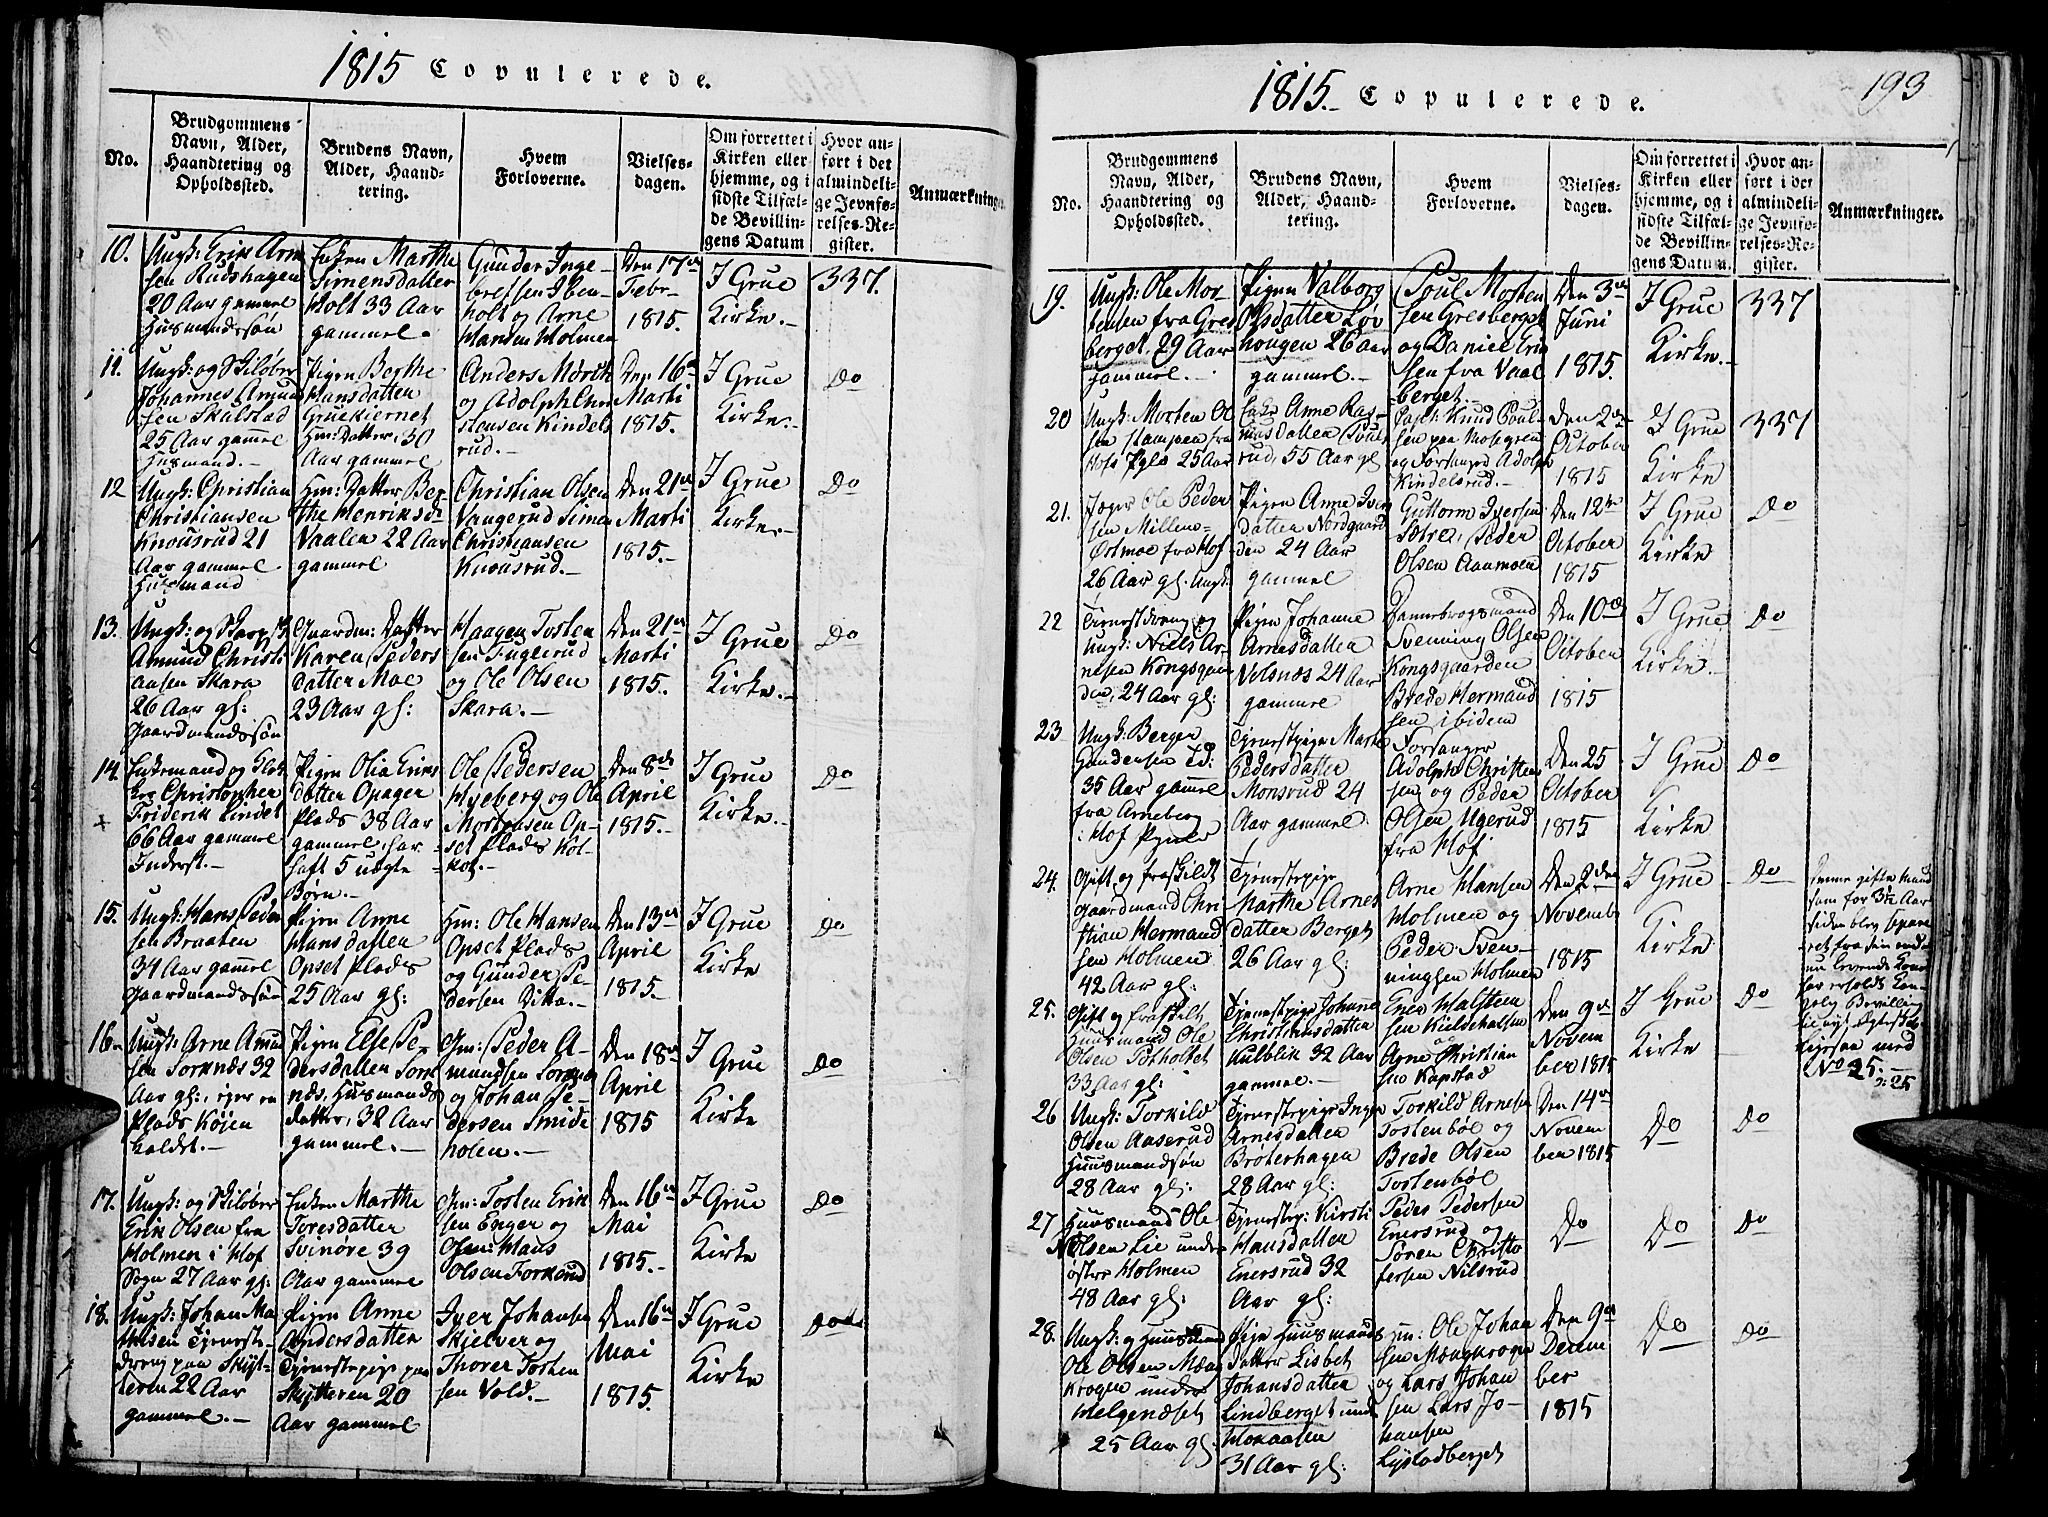 1815 Copulerede.
No.
Brudgommens
Navn, Alder,
Haandtering og
Opholdssted.
Brudens Navn,
Alder, Haand-
tering.
Hvem
Forloverne.
Vielses-
dagen.
Om forrettet i
Kirken eller
hjemme, og i
sidste Tilfæl-
de Bevillin-
gens Datum
Hvor an-
ført i det
almindeli-
ge Jevnfø-
relses-Re-
gister.
Anmærkninger
10.
Ungk: Erik Arne
sen Rudshagen
20 Aar gammel
Huusmandssøn
Enken Marthe
Simensdatter
Holt 33 Aar
gammel.
Gunder Inge-
bretsen Iben-
holt og Arne
Hansen Holmen
Den 17de
Febr-
1815.
I Grue
Kirke.-
337.
11.
Ungk: og Skiløber
Johannes Amund
sen Skulstad
25 Aar gammel
Husmand.-
Pigen Berthe
Hansdatter
Gruekiernet
Hm: Datter, 30
Aar gammel
Anders
og Adolph Chri
stensen Kindels
rud.-
Den 16de
Marti
1815.
I Grue
Kirke.-
Do
12
Ungk: Christian
Christiansen
Knousrud 21
Aar gammel
Huusmand
Hm: Datter Ber-
the Henriksd:
Vaalen 22 Aar
gammel
Christian Olsen
Vangerud Simen
Christiansen
Knousrud.-
Den 21de
Marti
1815.-
I Grue
Kirke.-
Do
13.
Amund Christi
ansen Skara
26 Aar gl:
Gaardmandssøn
Gaardm: Datter
Karen Peders
datter Moe
23 Aar gl:
Haagen Tosten
sen Fuglerud
og Ole Olsen
Skara.-
Den 21de
Marti
1815.
I Grue
Kirke.-
Do
14.
Enkemand og
Christopher
Friderik Lindet
66 Aar gammel
Inderst.-
Pigen Olia Eriks
datter Opager
Plads 38 Aar
gammel, har
haft 5 uægte
Børn.-
Ole Pedersen
Hyeberg og Ole
Mortensen Op-
set Plads Kol-
kol.-
Den 8de
April
1815.-
I Grue
Kirke.-
Do
15.
Ungk: Hans Peder
sen Braaten
34 Aar gammel
Gaardmandssøn
Pigen Anne
Hansdatter
Opset Plads
25 Aar gl:
Hm: Ole Hansen
Opset Plads
og Gunder Pe-
dersen Ditto.-
Den 13de
April
1815.-
I Grue
Kirke
Do
16.
Ungk: Arne Amun
sen Torknæs 32
Aar gl:, eier en
Plads Køien
kaldet.-
Pigen Else Pe-
dersdatter Tork
næs, Huusmands
datter, 32 Aar
gammel.-
Gm: Peder A-
mundsen Torknæs
og Johan Pe-
dersen Smids
holen.-
Den 18de
April
1815
I Grue
Kirke
Do
17.
Ungk: og Skiløber
Erik Olsen fra
Holmen i Hof
Sogn 27 Aar gl:
Enken Marthe
Toresdatter
Svinøre 39
Aar gammel
Gm: Tosten Erik
sen Enger og
Gm: Hans
Olsen Forkerud
Den 16de
Mai
1815.-
I Grue
Kirke
Do
18.
Ungk: Johan Ma
thisen Tjeneste-
dreng paa Skyt-
teren 22 Aar
gammel.-
Pigen Anne
Andersdatter
Tjenestepige paa
Skytteren 20
Aar gammel
Iver Johansen
Skjelver og
Thorer Tosten
sen Vold.-
Den 16de
Mai
1815.
I Grue
Kirke
Do
1815.- Copulerede.
193
No.
Brudgommens
Navn, Alder,
Haandtering og
Opholdssted.
Brudens Navn,
Alder, Haand-
tering.
Hvem
Forloverne.
Vielses-
dagen.
Om forrettet i
Kirken eller
hjemme, og i
sidste Tilfæl-
de Bevillin-
gens Datum.
Hvor an-
ført i det
almindeli-
ge Jevnfø-
relses-Re-
gister.
Anmærkninger.
19.
Ungk: Ole Mor-
tensen fra Gres
berget, 29 Aar
gammel.-
Pigen Valborg
Olsdatter Løv
hougen 26 Aar
gammel.-
Poul Morten
sen Gresberget
og Daniel Erik
sen fra Vaal
berget.-
Den 3de
Juni
1815.
I Grue
Kirke.-
337
20
Ungk: Morten Ol
sen Hampen fra
Hofs Pgld 25 Aar
Enke Anne Ras-
musdatter Pouls
rud, 55 Aar gl.
Knud Poul
sen paa
og Forsanger Adolph
Kindelsrud.-
Den 2den
October
1815
I Grue
Kirke
337
21.
Jæger Ole Peder
sen Millem-
Østmoe fra Hof
26 Aar gl. Ungk:
Pigen Anne Iver
datter Nordgaard
den 24 Aar
gammel
Guttorm Iversen
Sætre, Peder
Olsen Aanmoen
Den 12te
October
1815
I Grue
Kirke
Do
22
Tienestdreng og
Ungk: Niels Ar-
nesen Kongsgaar
den, 24 Aar gl:
Pigen Johanne
Arnesdatter
Volsnæs 24 Aar
gammel
Dannebrogsmand
Svenning Olsen
Kongsgaarden
Brede Hermand
sen ibidem
Den 10de
October
1815
I Grue
Kirke.-
Do
23
Ungk: Berger
Gundersen Ed:
35 Aar gammel
fra Arneberg
i Hof
Tjenestpige Marte
Pedersdatter
Monsrud 24
Aar gammel.
Forsanger
Adolph Christen
sen og Peder
Olsen Ugerud
fra Hof
Den 25
October
1815
I Grue
Kirke
Do
24.
Gift og fraskildt
Gaardmand Chri
stian Hermand
sen Holmen
42 Aar gl:
Tjenestepige
Marthe Arnes
datter Berget
26 Aar gl:
Arne Hansen
Holmen og
Peder Sven-
ningsen Holmen
Den 2den
Novemb
1815
I Grue
Kirke
Do
Denne gifte Mand
som for 3½ Aar
siden blev separe
ret fra sin endnu
levende Kone
har erholdt Kon-
gelig Bevilling
til nyt Ægteskab
ligesaa med
No 25.-
25.
Gift og fraskilt
Huusmand Ole
Olsen Potholtet
33 Aar gl:
Tjenestpige Johanne
Christiansdatter
Kulblik 32 Aar
gammel.-
Ener Halsten
sen Kieldehalsen
og
Arne Christian
sen Kapstad
Den 9de
Novem
ber 1815
I Grue
Kirke
Do
26
Ungk: Torkild
Olsen Aaserud
Huusmandsøn
28 Aar gl:
Tjenestepige Inger
Arnesdatter
Broterhagen
28 Aar gl:
Torkild Arnesen
Tostenbøl og
Brede Olsen
Tostenbøl
Den 14de
Novem
ber 1815
Do
Do
27
Huusmand Ole
Olsen Lie under
østre Holmen
48 Aar gl:
Tjenestep: Kirsti
Hansdatter
Enersrud 32
Aar gl:
Peder Pedersen
Enersrud og
Søren Christo
fersen Nilsrud
Do
Do
Do
28.
Ungk: og Huusmand
Ole Olsen Mæng
Krogen under
Melgenæset
25 Aar gl.
Pigen Huusmands
Datter Lisbet
Johansdatter
Lindberget und
Mokaasen
31 Aar gl:
Hm: Ole Johan
sen Mængkrogen
og Lars Johan
sen Lars Jo-
hansen
Lystadberget
Den 9de
Decem
ber
1815
Do
Do